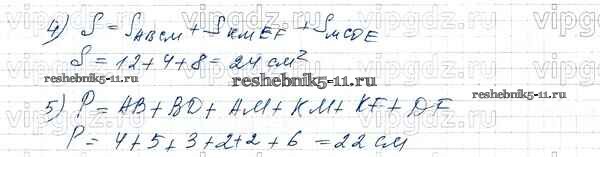 vipgdz.ru vipgdz.ru vipgdz.ru
4) S = S ABCM + S KMEF + S MCDE
S = 12 + 4 + 8 = 24 см²
reshebnik5-11.ru
reshebnik5-11.ru
reshebnik5-11.ru
5) P = AB + BD + AM + KM + KF + DF
P = 4 + 5 + 3 + 2 + 2 + 6 = 22 см